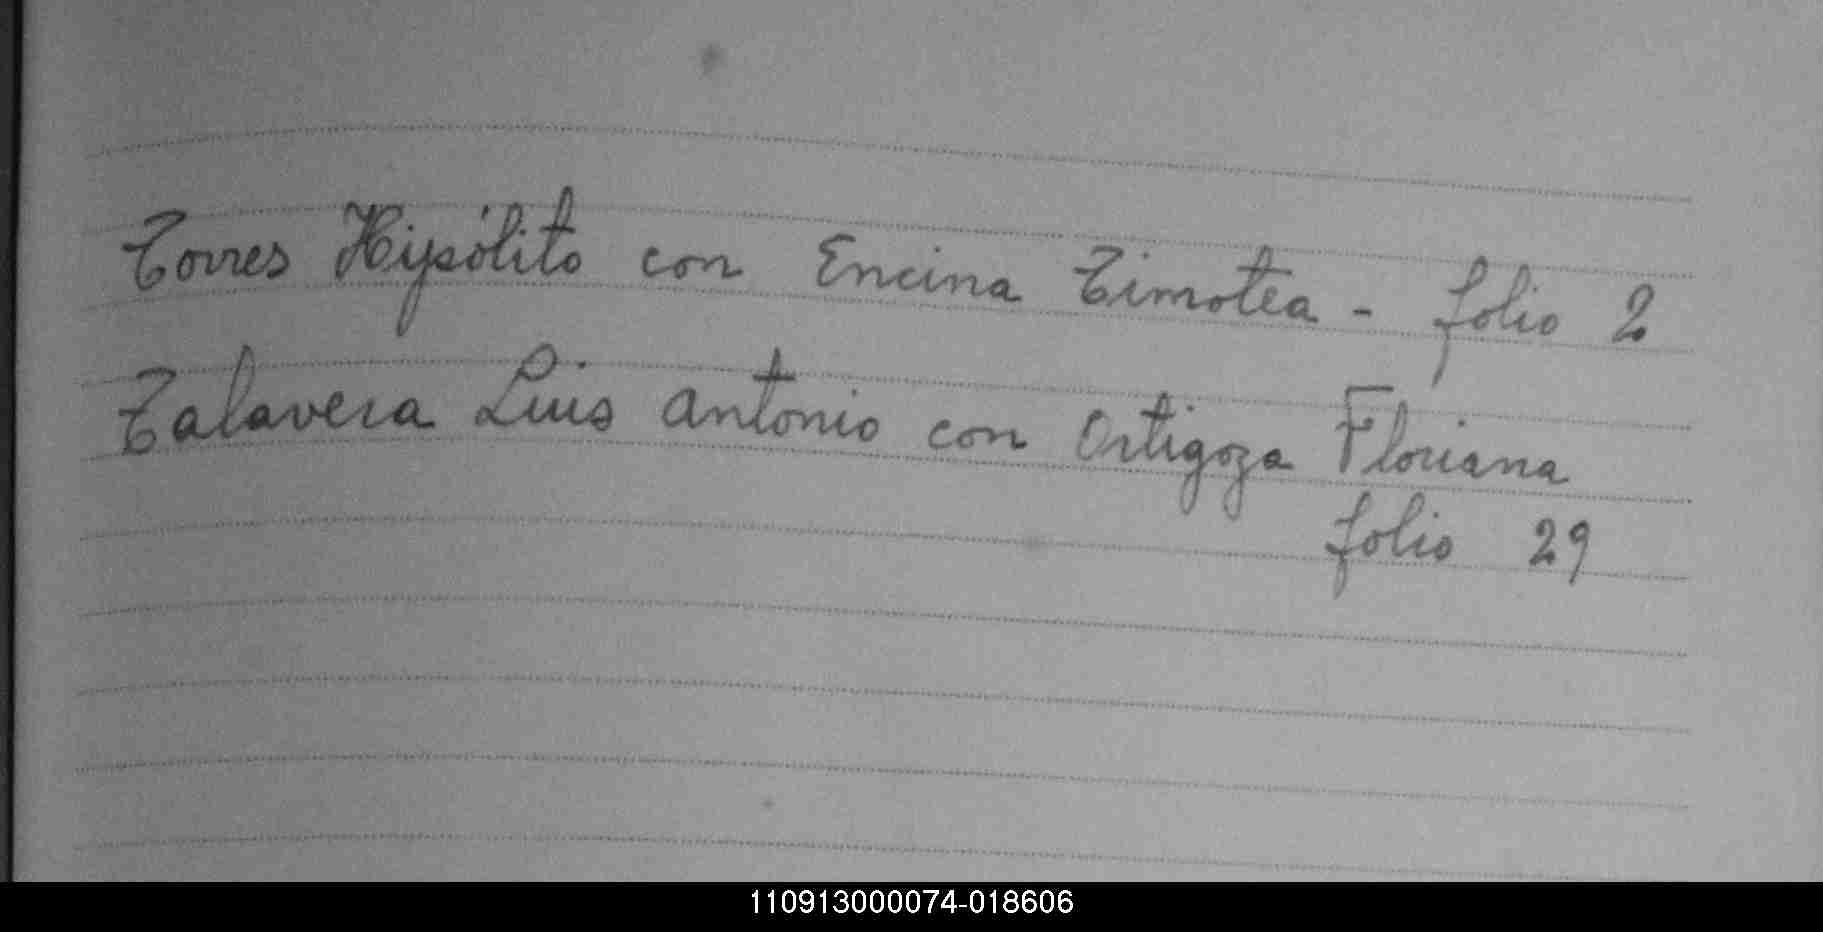 Torres Hipólito con Encina Timotea - folio 2
Talavera Luis Antonio con Ortigoza Floriana
folio 29
110913000074-018606